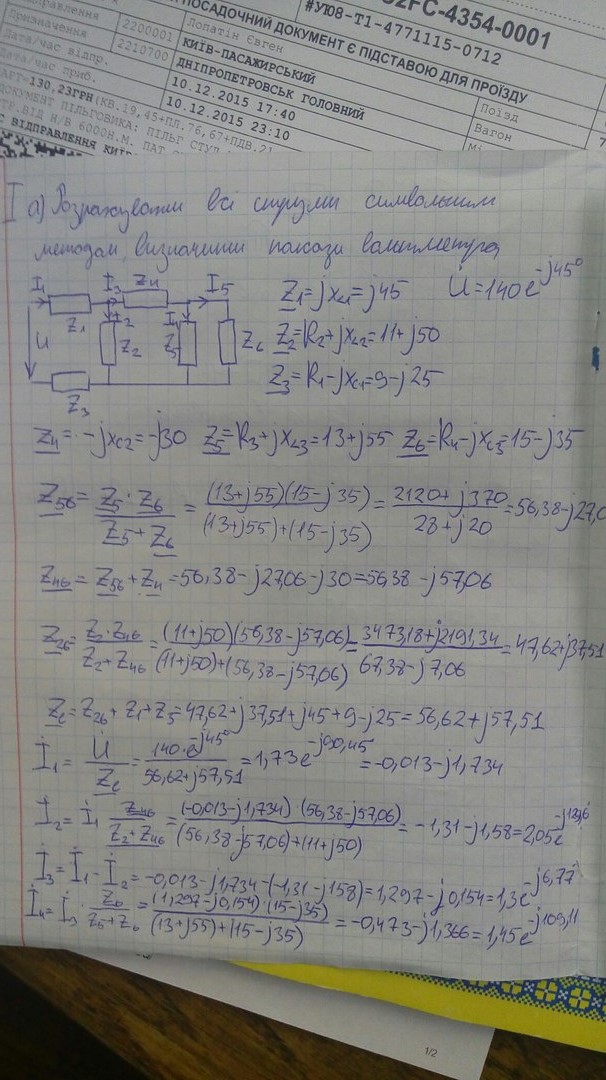 52FC-4354-0001
#УЮ8-Т1-4771115-0712
ПОСАДОЧНИЙ ДОКУМЕНТ Є ПІДСТАВОЮ ДЛЯ ПРОЇЗДУ
Лопатін Євген
Призначення 2200001 КИЇВ-ПАСАЖИРСЬКИЙ Поїзд
Дата/час відпр. 2210700 ДНІПРОПЕТРОВСЬК ГОЛОВНИЙ Вагон
Дата/час приб. 10.12.2015 17:40
10.12.2015 23:10
=130,23ГРН(КВ.19,45+ПЛ.76,67+ПДВ.21
ДОКУМЕНТ ПІЛЬГОВИКА: ПІЛЬГ СТУД
ВІД Н/В 6000Н.М. ПАТ
ВІДПРАВЛЕННЯ КИЇВ
I а) Розрахувати всі струми символьним
методом, визначити покази вольтметра
I1 I3 Z4 I5
Z1 I2 I4
U Z2 Z5 Z6
Z3
Z1=jxL1=j45 U̇=140e^-j45°
Z2=R2+jxL2=11+j50
Z3=R1-jxC1=9-j25
Z4=-jxC2=-j30 Z5=R3+jxL3=13+j55 Z6=R4-jxC3=15-j35
Z56= Z5·Z6/(Z5+Z6) = (13+j55)(15-j35)/((13+j55)+(15-j35)) = (2120+j370)/(28+j20) =56,38-j27,0
Z46=Z56+Z4=56,38-j27,06-j30=56,38-j57,06
Z26= Z2·Z46/(Z2+Z46) = (11+j50)(56,38-j57,06)/((11+j50)+(56,38-j57,06)) = (3473,18+j2191,34)/(67,38-j7,06) =47,62+j37,51
Ze=Z26+Z1+Z3=47,62+j37,51+j45+9-j25=56,62+j57,51
İ1= U̇/Ze = 140·e^-j45°/(56,62+j57,51) =1,73e^-j90,45=-0,013-j1,734
İ2=İ1 Z46/(Z2+Z46) = (-0,013-j1,734)·(56,38-j57,06)/((56,38-j57,06)+(11+j50)) =-1,31-j1,58=2,05e^-j129,6
İ3=İ1-İ2=-0,013-j1,734-(-1,31-j158)=1,297-j0,154=1,3e^-j6,77
İ4=İ3· Z6/(Z5+Z6) = (1,297-j0,154)·(15-j35)/((13+j55)+(15-j35)) =-0,473-j1,366=1,45e^-j109,11
1/2